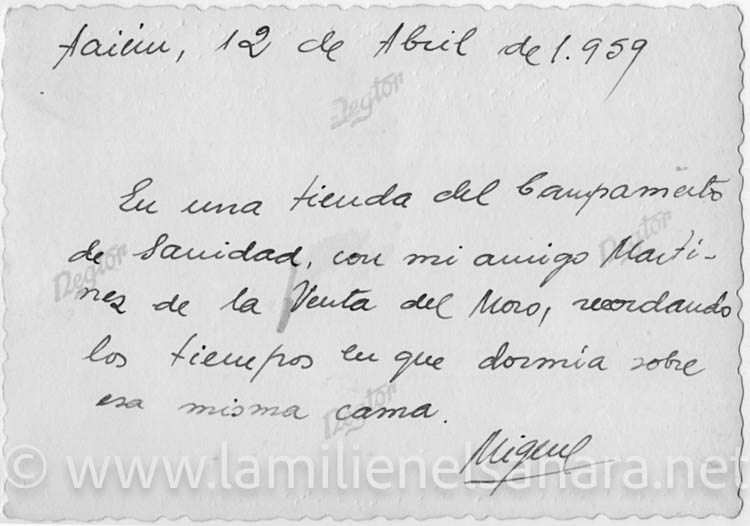 Aaiún, 12 de Abril de 1.959
Negtor
En una tienda del Campamento
de Sanidad, con mi amigo Marti-
Negtor
Negtor
nez de la Venta del Moro, recordando
los tiempos en que dormía sobre
esa misma cama.
Negtor
Miguel
© www.lamilienelsahara.net